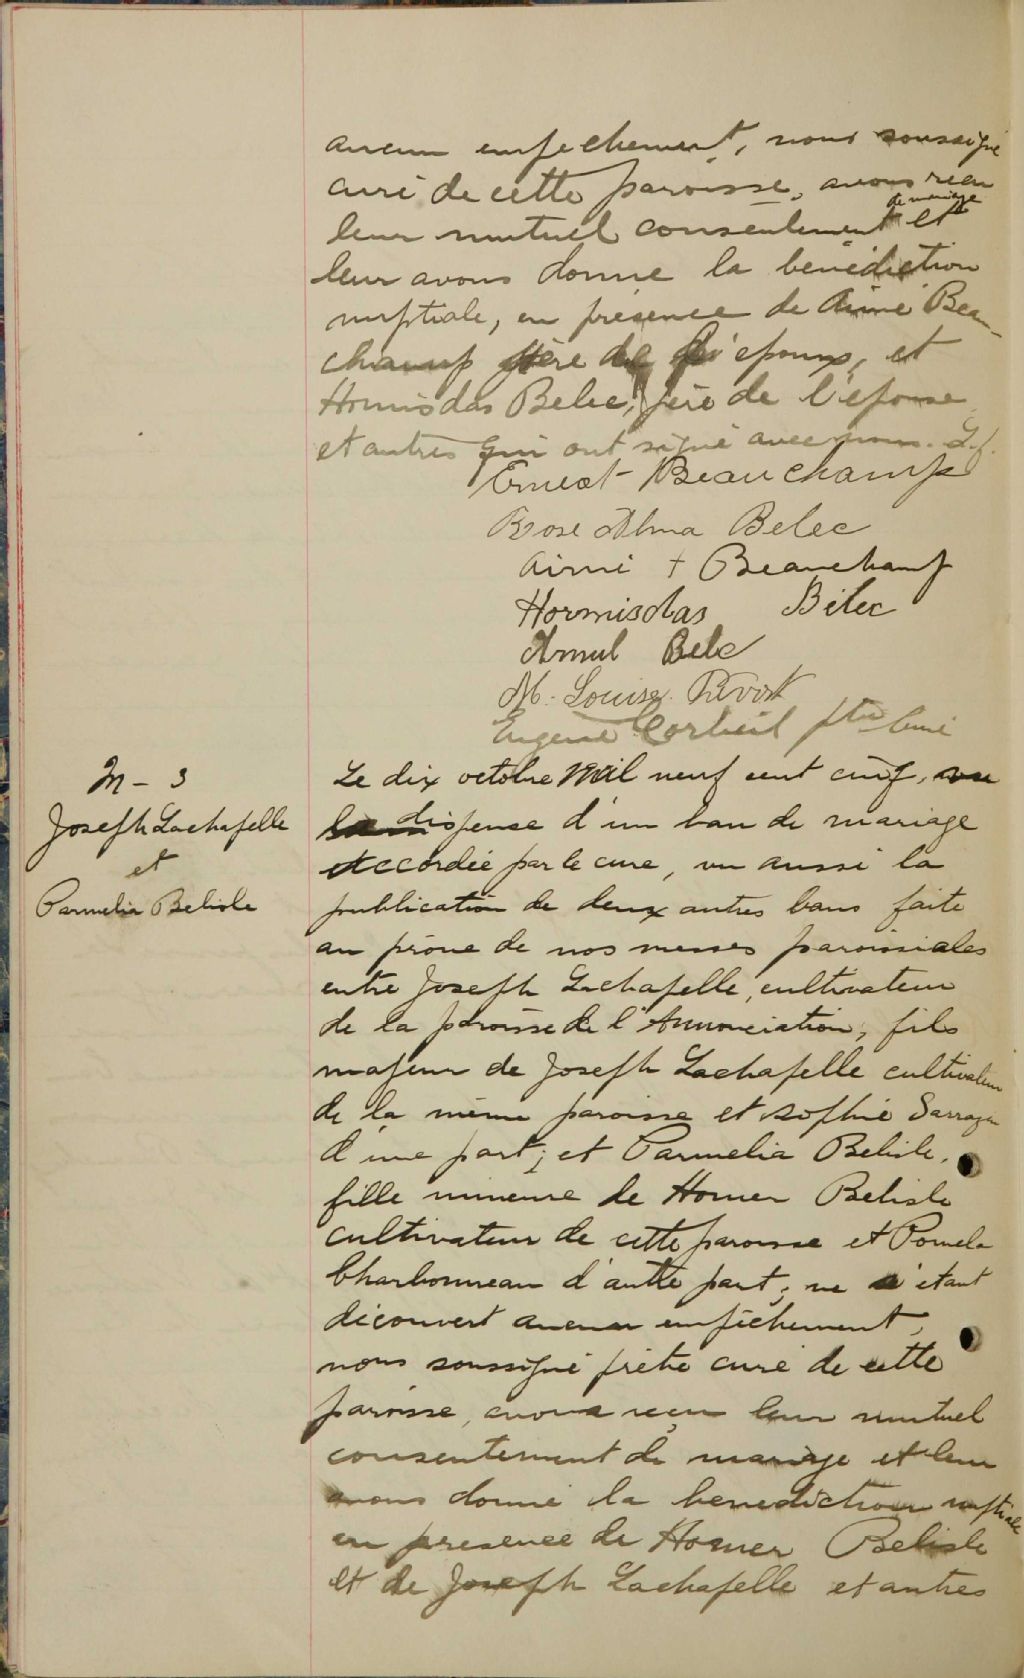 aucun empechement, nous soussigné
curé de cette paroisse, avons recu
de mariage
leur mutuel consentement et
leur avons donné la benédiction
nuptiale, en présence de Aimé Beau-
champ frère de l'époux, et
Hormisdas Belec, père de l'épouse
et autres qui ont signé avec nous. L.f.
Ernest Beauchamp
Rose Alma Belec
Aimé + Beauchamp
Hormisdas Bélec
Belec
M. Louise Prévost
Eugene Corbeil ptre Curé
M - 3
Joseph Lachapelle
et
Parmelia Belisle
Le dix octobre mil neuf cent cinq, vu
la dispense d'un ban de mariage
accordée par le curé, vu aussi la
publication de deux autres bans faite
au prône de nos messes paroissiales
entre Joseph Lachapelle, cultivateur
de la paroisse de l'Annonciation, fils
majeur de Joseph Lachapelle cultivateur
de la même paroisse et Sophie Sarrazin
d'une part; et Parmelia Belisle,
fille mineure de Homer Belisle
cultivateur de cette paroisse et Pomela
Charbonneau d'autre part; ne s'étant
découvert aucun empêchement,
nous soussigné prêtre curé de cette
paroisse, avons reçu leur mutuel
consentement de mariage et leur
avons donné la benediction nuptiale
en presence de Homer Belisle
et de Joseph Lachapelle et autres